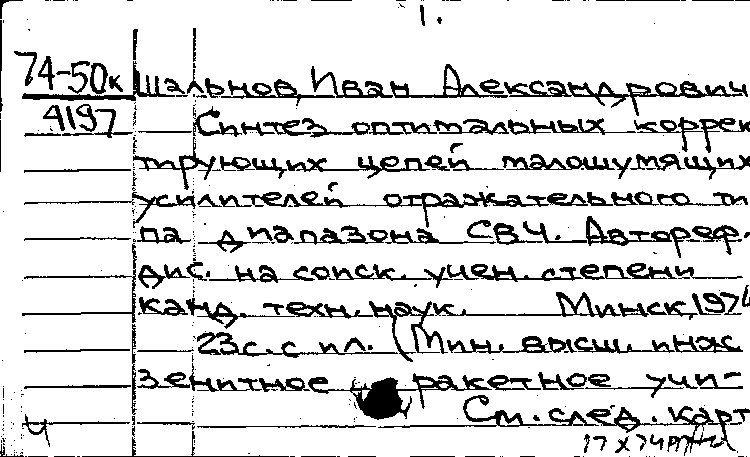 1.
74-50к Шальнов, Иван Александрович
4197 Синтез оптимальных коррек
тирующих цепей малошумящих
усилителей отражательного ти
па диапазона СВЧ. Автореф.
дис. на соиск. учен. степени
канд. техн. наук. Минск, 197
23 с. с ил. (Мин. высш. инж
зенитное ракетное учи-
См. след. карт
Ч